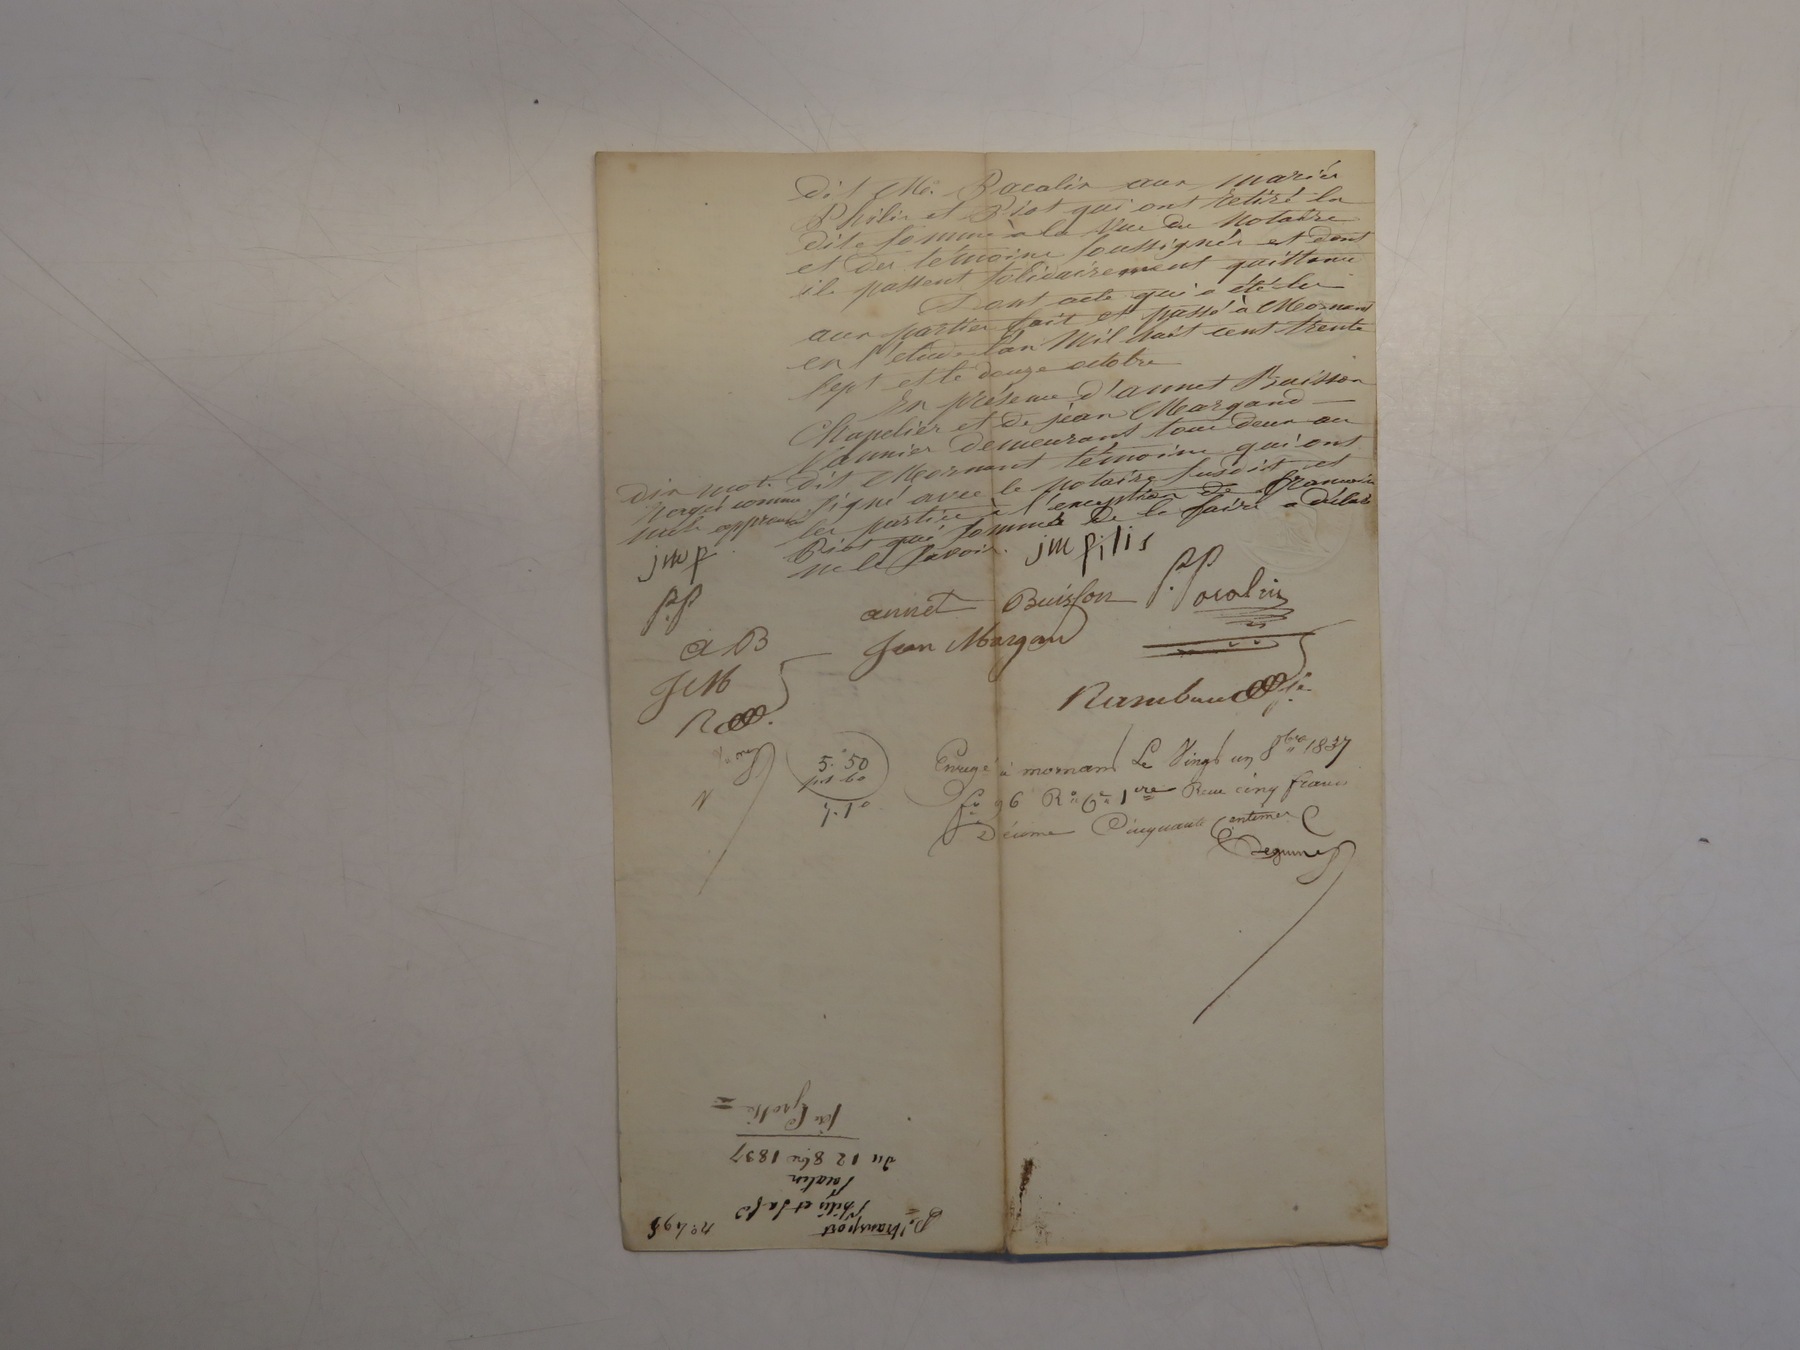 dit Mr. Pocalin aux mariés
Philis et Piot qui ont retiré la
dite somme à la vue du notaire
et des témoins soussignés et dont
ils passent solidairement quittance
Dont acte qui a été lu
aux parties fait et passé à Mornant
en l'étude l'an mil huit cent trente
sept et le douze octobre
En présence d'annet Buisson
Chapelier et de jean Margand
vannier demeurants tous deux au
dit Mornant témoins qui ont
signé avec le notaire susdit et
les parties à l'exception de françoise
Piot qui sommée de le faire a déclaré
ne le savoir.
dix mots
nuls approuvé
jmp
PP
a B
JM
R
jmfilis
annet Buisson
P. Pocalin
Jean Margand
Rambaud
5.50
60
Enregé à mornant Le Vingt un 8bre 1837
fo 96 Ro Ce 1ere Reçu cinq francs
Décime Cinquante Centimes
No 498
transport
Philis et sa fe
Pocalin
du 12 8bre 1837
1re Grosse